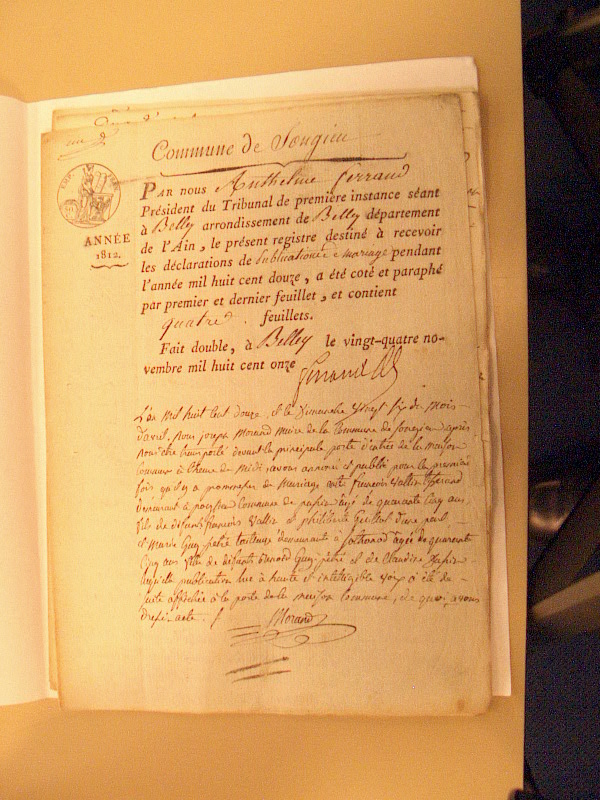 Commune de Songieu
ANNÉE
1812.
PAR nous Anthelme Ferrand
Président du Tribunal de première instance séant
à Belley arrondissement de Belley département
de l'Ain, le présent registre destiné à recevoir
les déclarations de Publication de mariage pendant
l'année mil huit cent douze, a été coté et paraphé
par premier et dernier feuillet, et contient
quatre feuillets.
Fait double, à Belley le vingt-quatre no-
vembre mil huit cent onze
L'an mil huit cent douze, et le Dimanche vingt six du mois
d'avril, nous joseph Morand Maire de la Commune de songieu après
nous être transporté devant la principale porte d'entrée de la maison
Commune à l'heure de Midi, avons annoncé et publié pour la première
fois qu'il y a promesse de mariage entre françois Vallin
demeurant à Commune de âgé de quarante Cinq ans
fils de défunt françois Vallin et philiberte d'une part,
et Marie Guy demeurant à Sothonod âgée de quarante
Cinq ans fille de défunt Guy et de Claudine
publication lue à haute et intelligible voix à été de
suite affichée à la porte de la maison Commune, de quoi avons
acte.
Morand